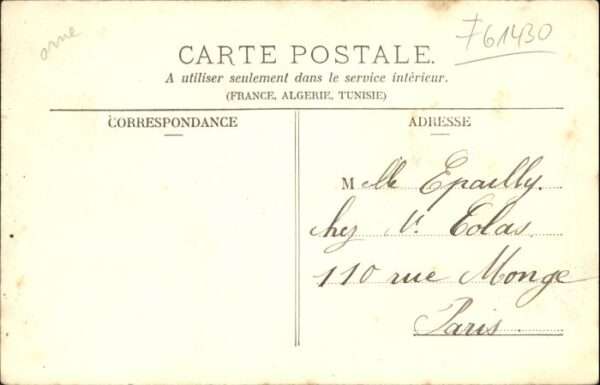 orne
761430
CARTE POSTALE.
A utiliser seulement dans le service intérieur.
(FRANCE, ALGERIE, TUNISIE)
CORRESPONDANCE
ADRESSE
Mlle Epailly.
chez Mr. Colas.
110 rue Monge
Paris.